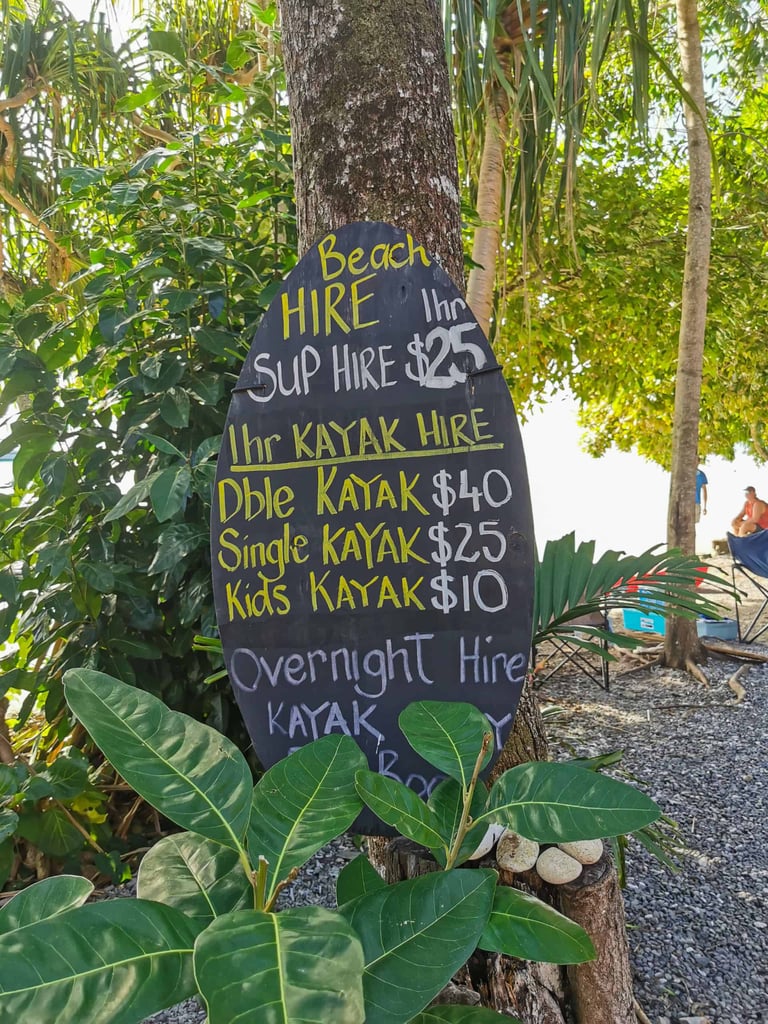 Beach
HIRE 1hr
SUP HIRE $25
1hr KAYAK HIRE
Dble KAYAK $40
Single KAYAK $25
Kids KAYAK $10
Overnight Hire
KAYAK